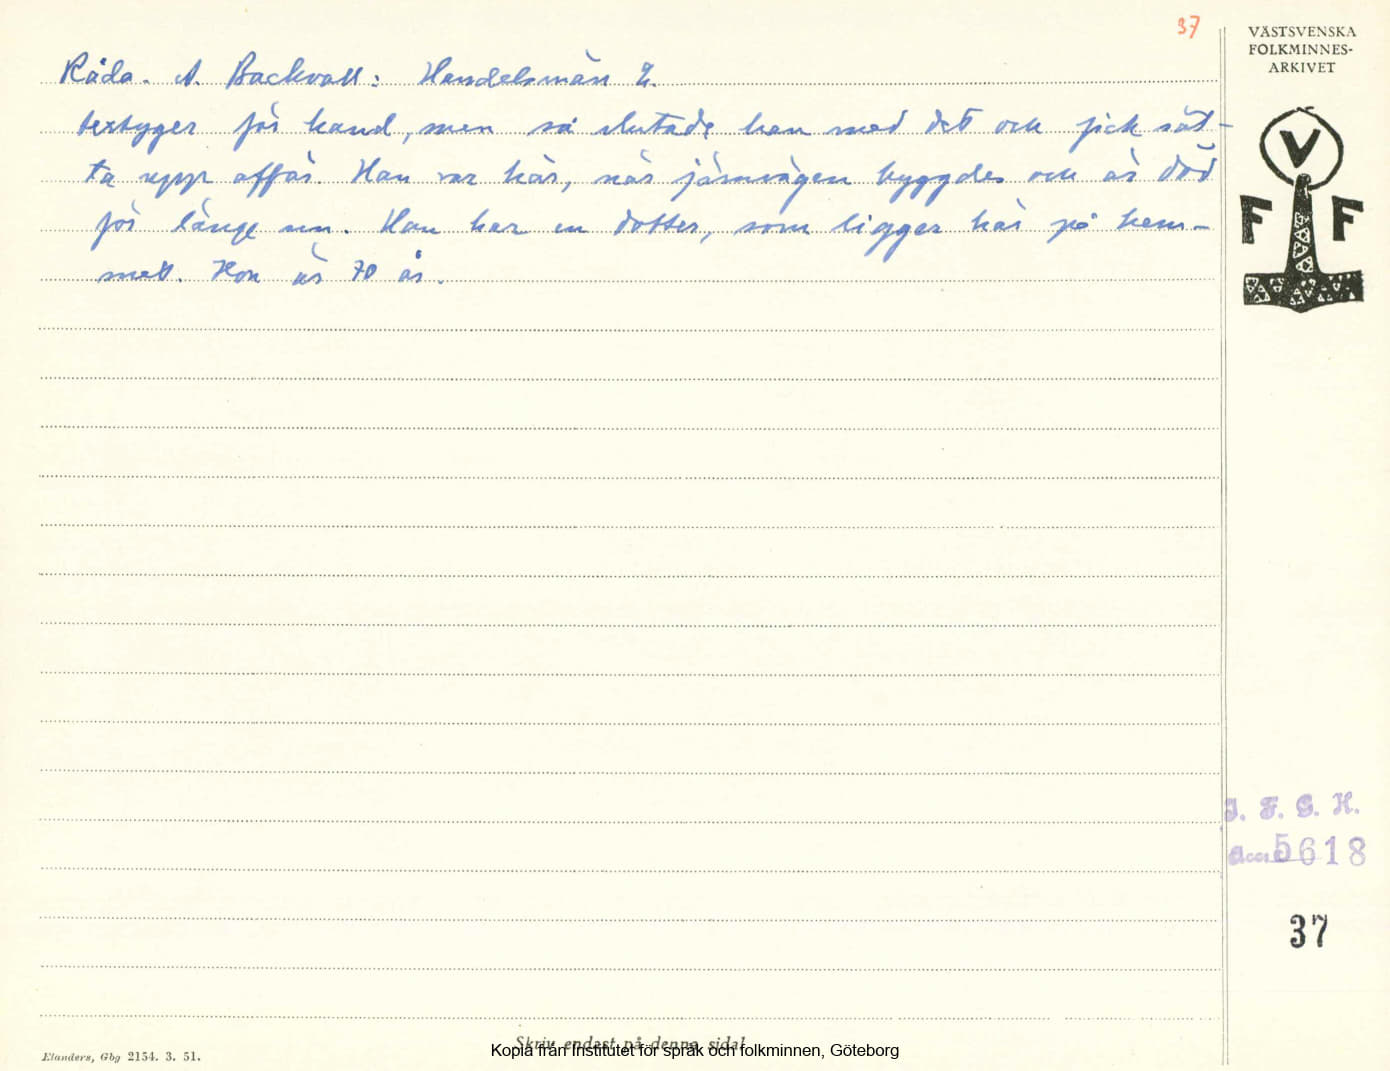 37
VÄSTSVENSKA
FOLKMINNES-
ARKIVET
Råda. A. Backvall: Handelsmän 2.
textyger för hand, men så slutade han med det och fick sät-
ta upp affär. Han var här, när järnvägen byggdes och är död
för länge sen. Han har en dotter, som ligger här på hem-
met. Hon är 70 år.
V
F F
I. F. G. H.
Acc. 5618
37
Skriv endast på denna sida!
Kopia från Institutet för språk och folkminnen, Göteborg
Elanders, Gbg 2154. 3. 51.